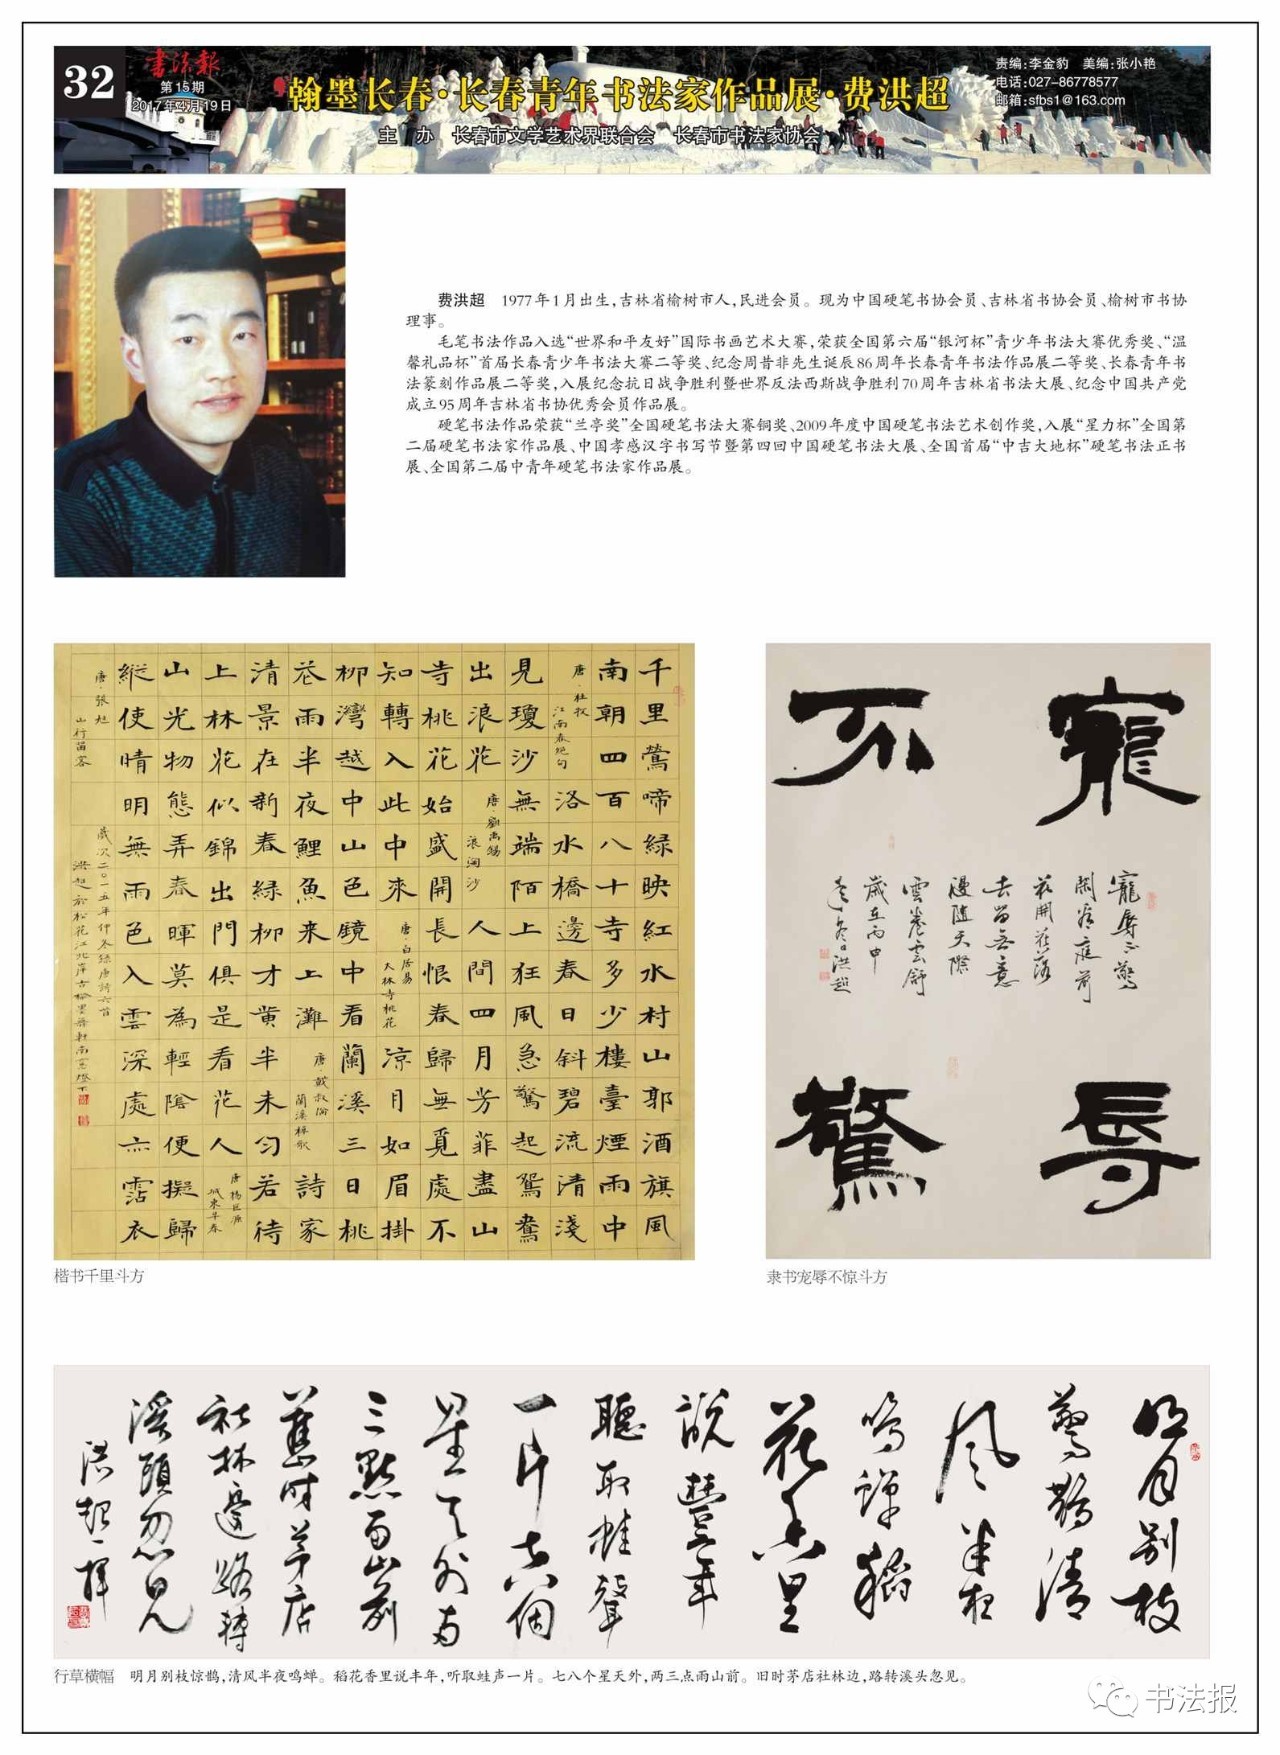 32
书法报
第15期
2017年4月19日
翰墨长春·长春青年书法家作品展·费洪超
主 办 长春市文学艺术界联合会 长春市书法家协会
责编:李金豹 美编:张小艳
电话:027-86778577
邮箱:sfbs1@163.com
费洪超 1977年1月出生,吉林省榆树市人,民进会员。现为中国硬笔书协会员、吉林省书协会员、榆树市书协
理事。
毛笔书法作品入选“世界和平友好”国际书画艺术大赛,荣获全国第六届“银河杯”青少年书法大赛优秀奖、“温
馨礼品杯”首届长春青少年书法大赛二等奖、纪念周昔非先生诞辰86周年长春青年书法作品展二等奖、长春青年书
法篆刻作品展二等奖,入展纪念抗日战争胜利暨世界反法西斯战争胜利70周年吉林省书法大展、纪念中国共产党
成立95周年吉林省书协优秀会员作品展。
硬笔书法作品荣获“兰亭奖”全国硬笔书法大赛铜奖、2009年度中国硬笔书法艺术创作奖,入展“星力杯”全国第
二届硬笔书法家作品展、中国孝感汉字书写节暨第四回中国硬笔书法大展、全国首届“中吉大地杯”硬笔书法正书
展、全国第二届中青年硬笔书法家作品展。
千里鶯啼緑映紅水村山郭酒旗風
南朝四百八十寺多少樓臺煙雨中
唐·杜牧
江南春绝句
洛水橋邊春日斜碧流清淺
見瓊沙無端陌上狂風急驚起鴛鴦
出浪花
唐·劉禹錫
浪淘沙
人間四月芳菲盡山
寺桃花始盛開長恨春歸無覓處不
知轉入此中來
唐·白居易
大林寺桃花
凉月如眉掛
柳灣越中山色鏡中看蘭溪三日桃
花雨半夜鯉魚來上灘
唐·戴叔倫
蘭溪棹歌
詩家
清景在新春緑柳才黄半未匀若待
上林花似錦出門俱是看花人
唐·楊巨源
城東早春
山光物態弄春暉莫為輕陰便擬歸
縱使晴明無雨色入雲深處亦霑衣
唐·張旭
山行留客
歲次二〇一五年仲冬録唐詩六首
楷书千里斗方
寵辱
不驚
寵辱不驚
閑看庭前
花開花落
去留無意
漫随天際
雲卷雲舒
歲在丙申
洪超
隶书宠辱不惊斗方
明月别枝
驚鵲清
風半夜
鳴蟬稻
花香里
説豐年
聽取蛙聲
一片七八個
星天外兩
三點雨山前
舊時茅店
社林邊路轉
溪頭忽見
洪超
行草横幅 明月别枝惊鹊,清风半夜鸣蝉。稻花香里说丰年,听取蛙声一片。七八个星天外,两三点雨山前。旧时茅店社林边,路转溪头忽见。
书法报